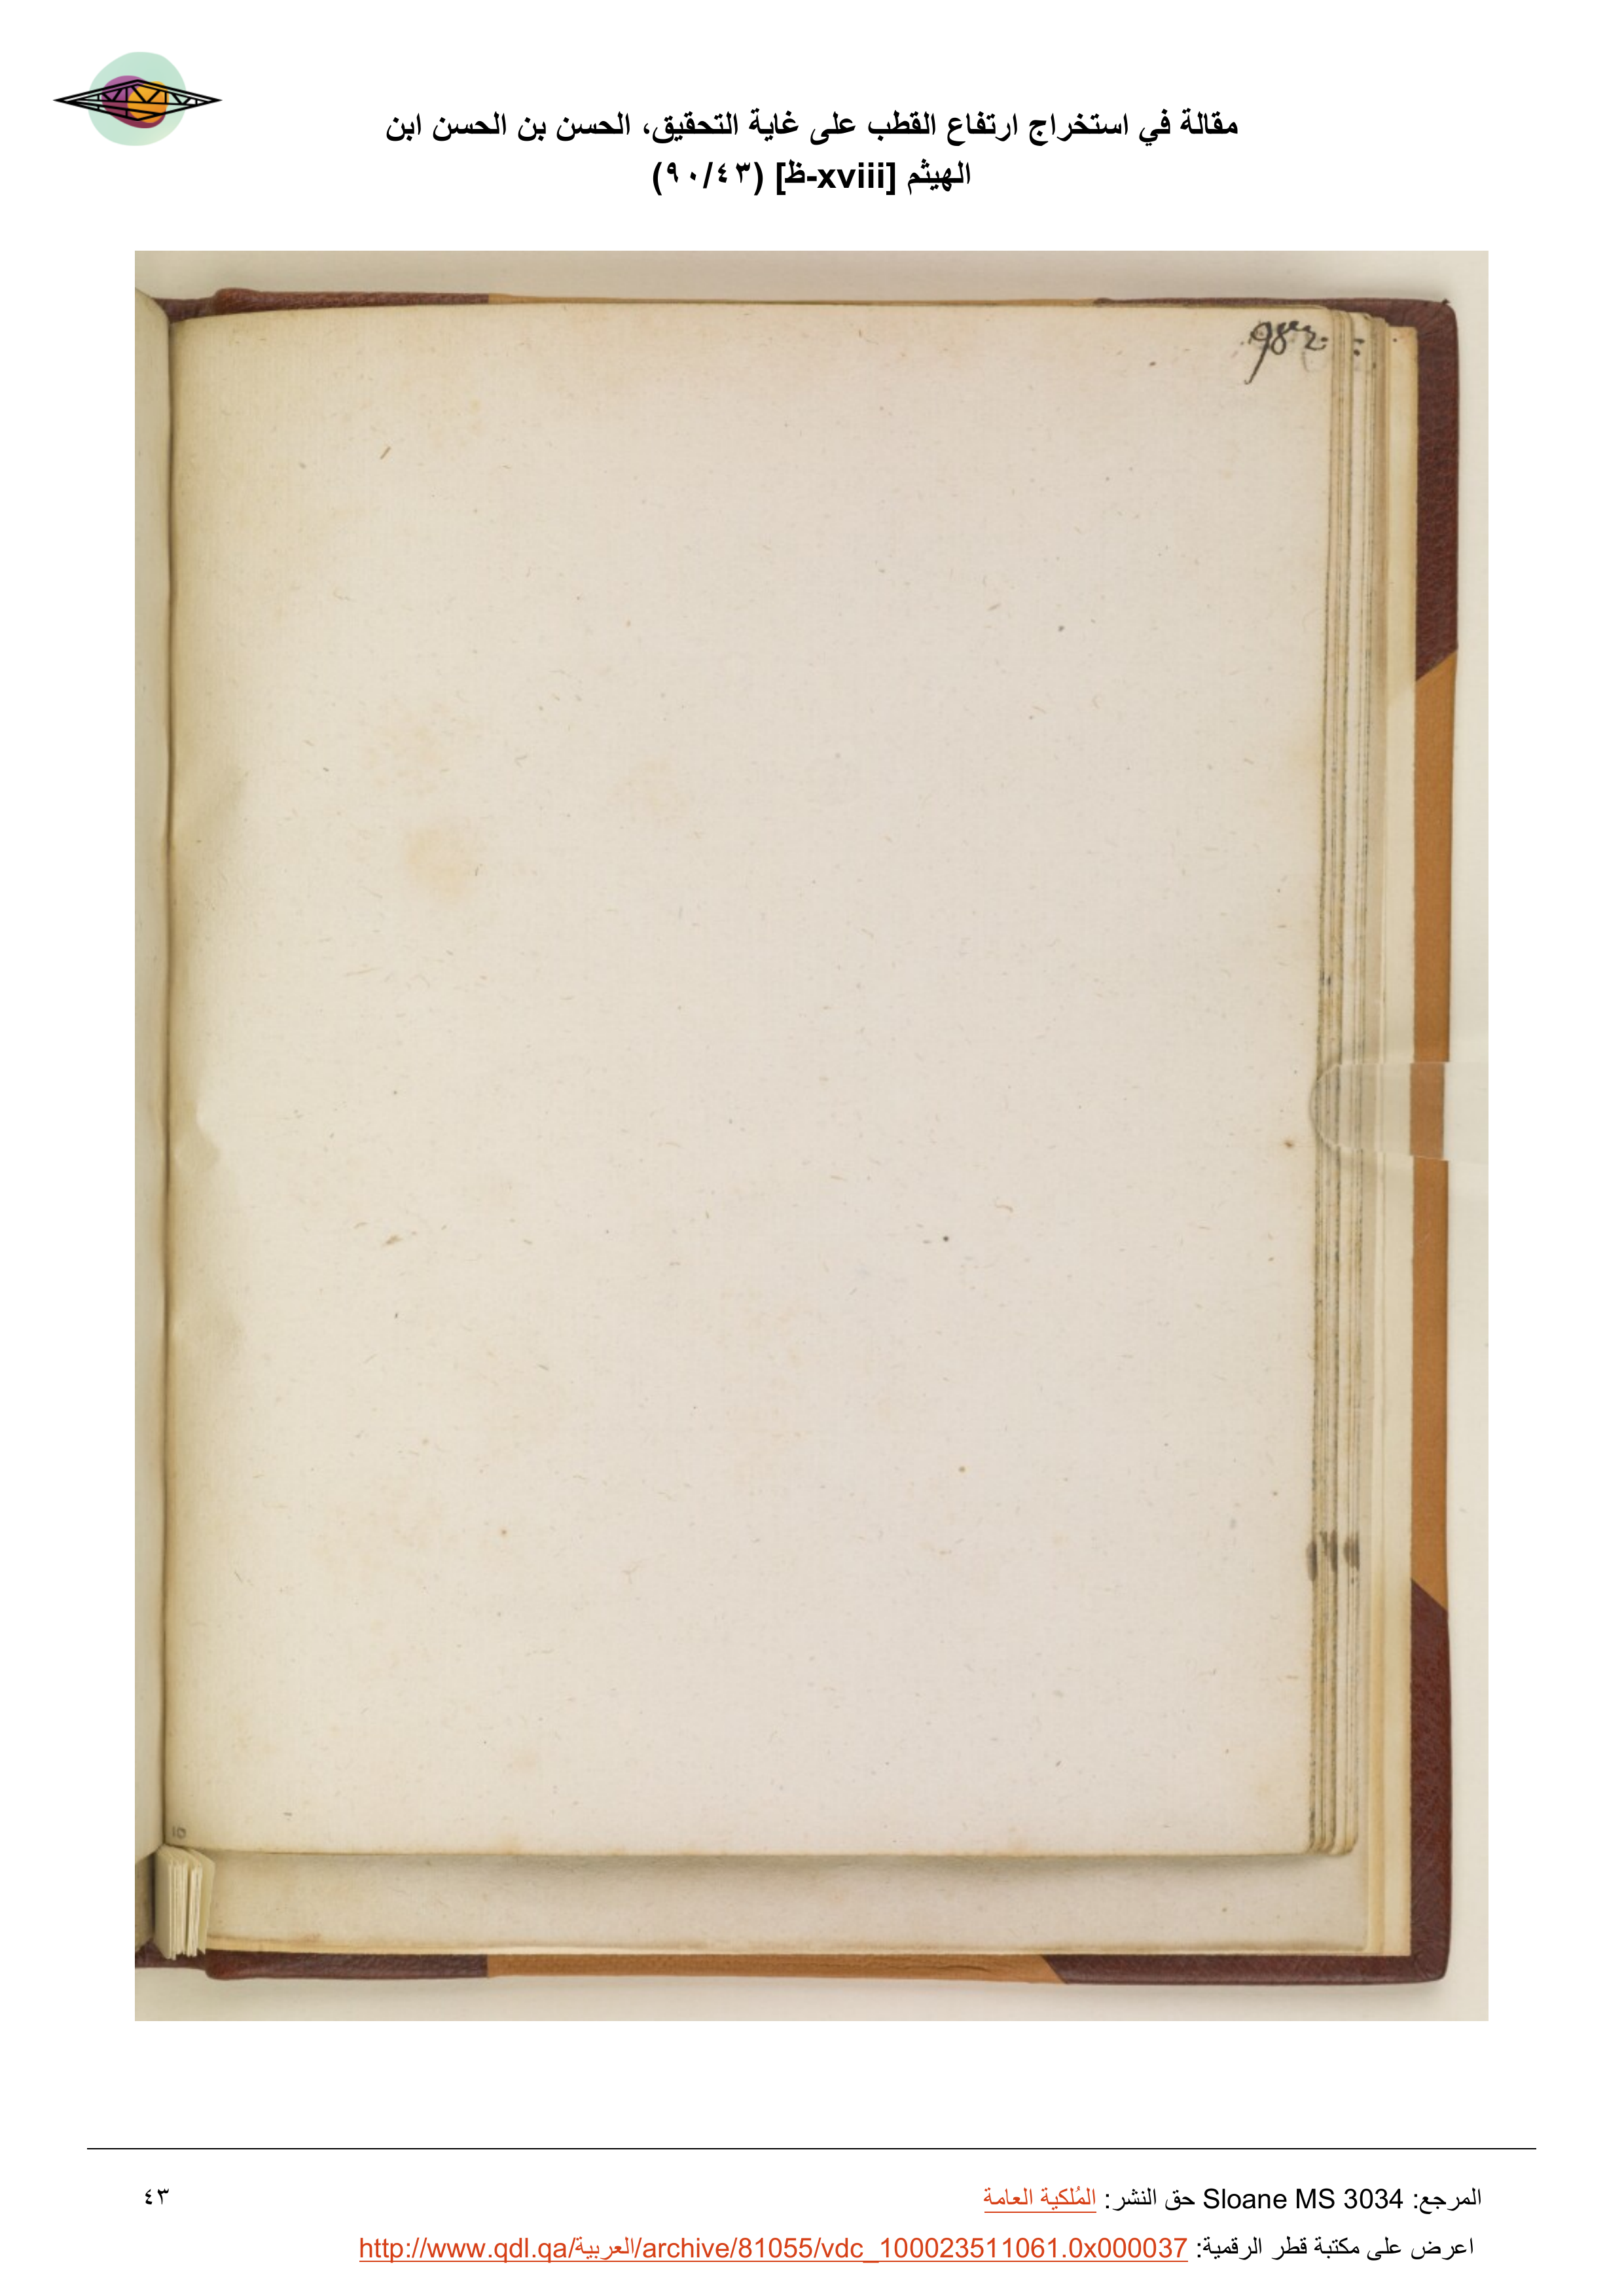 مقالة في استخراج ارتفاع القطب على غاية التحقيق، الحسن بن الحسن ابن
الهيثم [xviii-ظ] (٩٠/٤٣)
المرجع: Sloane MS 3034 حق النشر: المُلكية العامة
٤٣
اعرض على مكتبة قطر الرقمية: http://www.qdl.qa/العربية/archive/81055/vdc_100023511061.0x000037